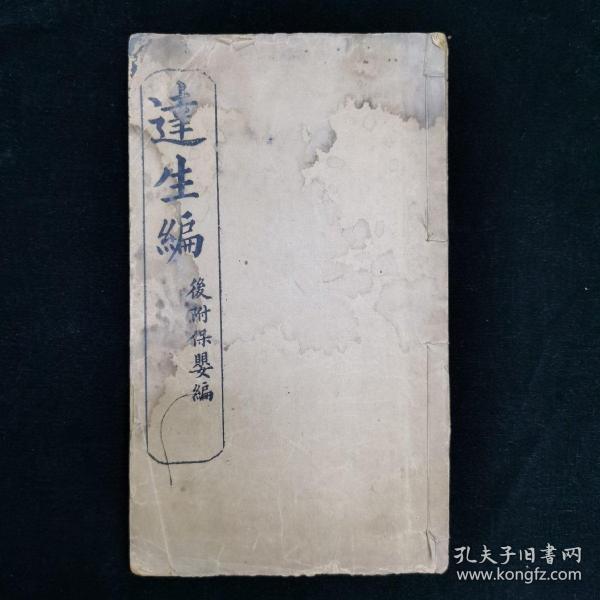 達生編
後附保嬰編
孔夫子旧書网
www.kongfz.com